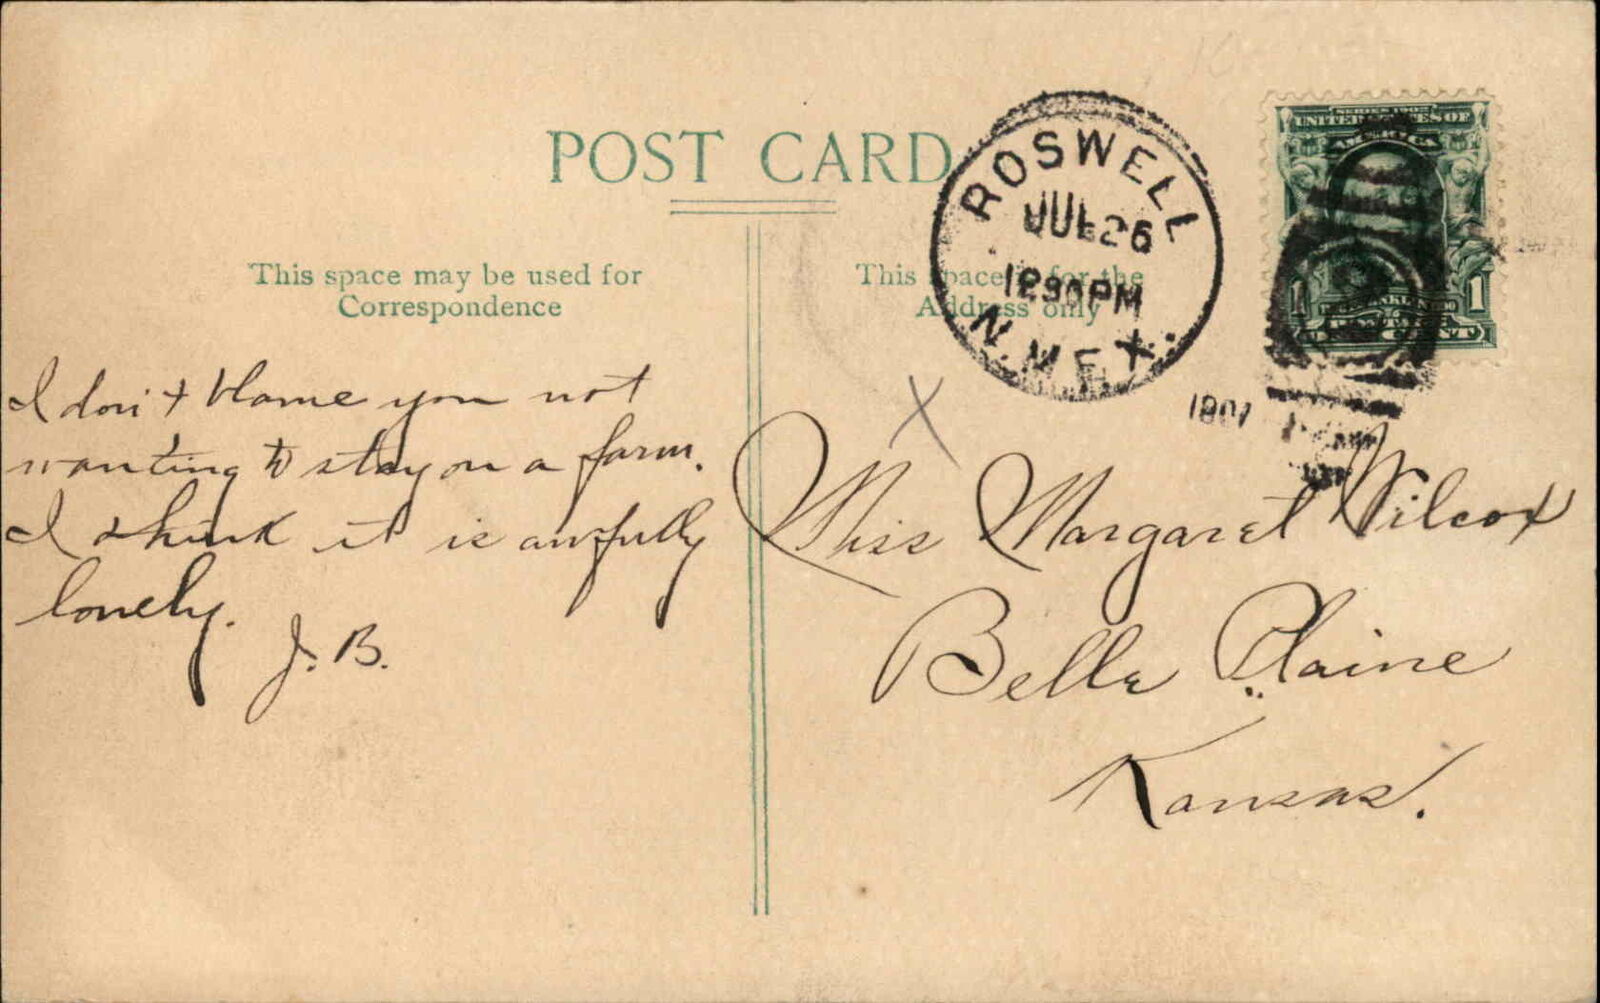 POST CARD
This space may be used for
Correspondence
This space is for the
Address only
ROSWELL
JUL 26
1230PM
N. MEX.
1907
SERIES 1902
UNITED STATES OF
AMERICA
1 1
FRANKLIN
ONE CENT
I don't blame you not
wanting to stay on a farm.
I think it is awfully
lonely.
J. B.
Miss Margaret Wilcox
Belle Plaine
Kansas.